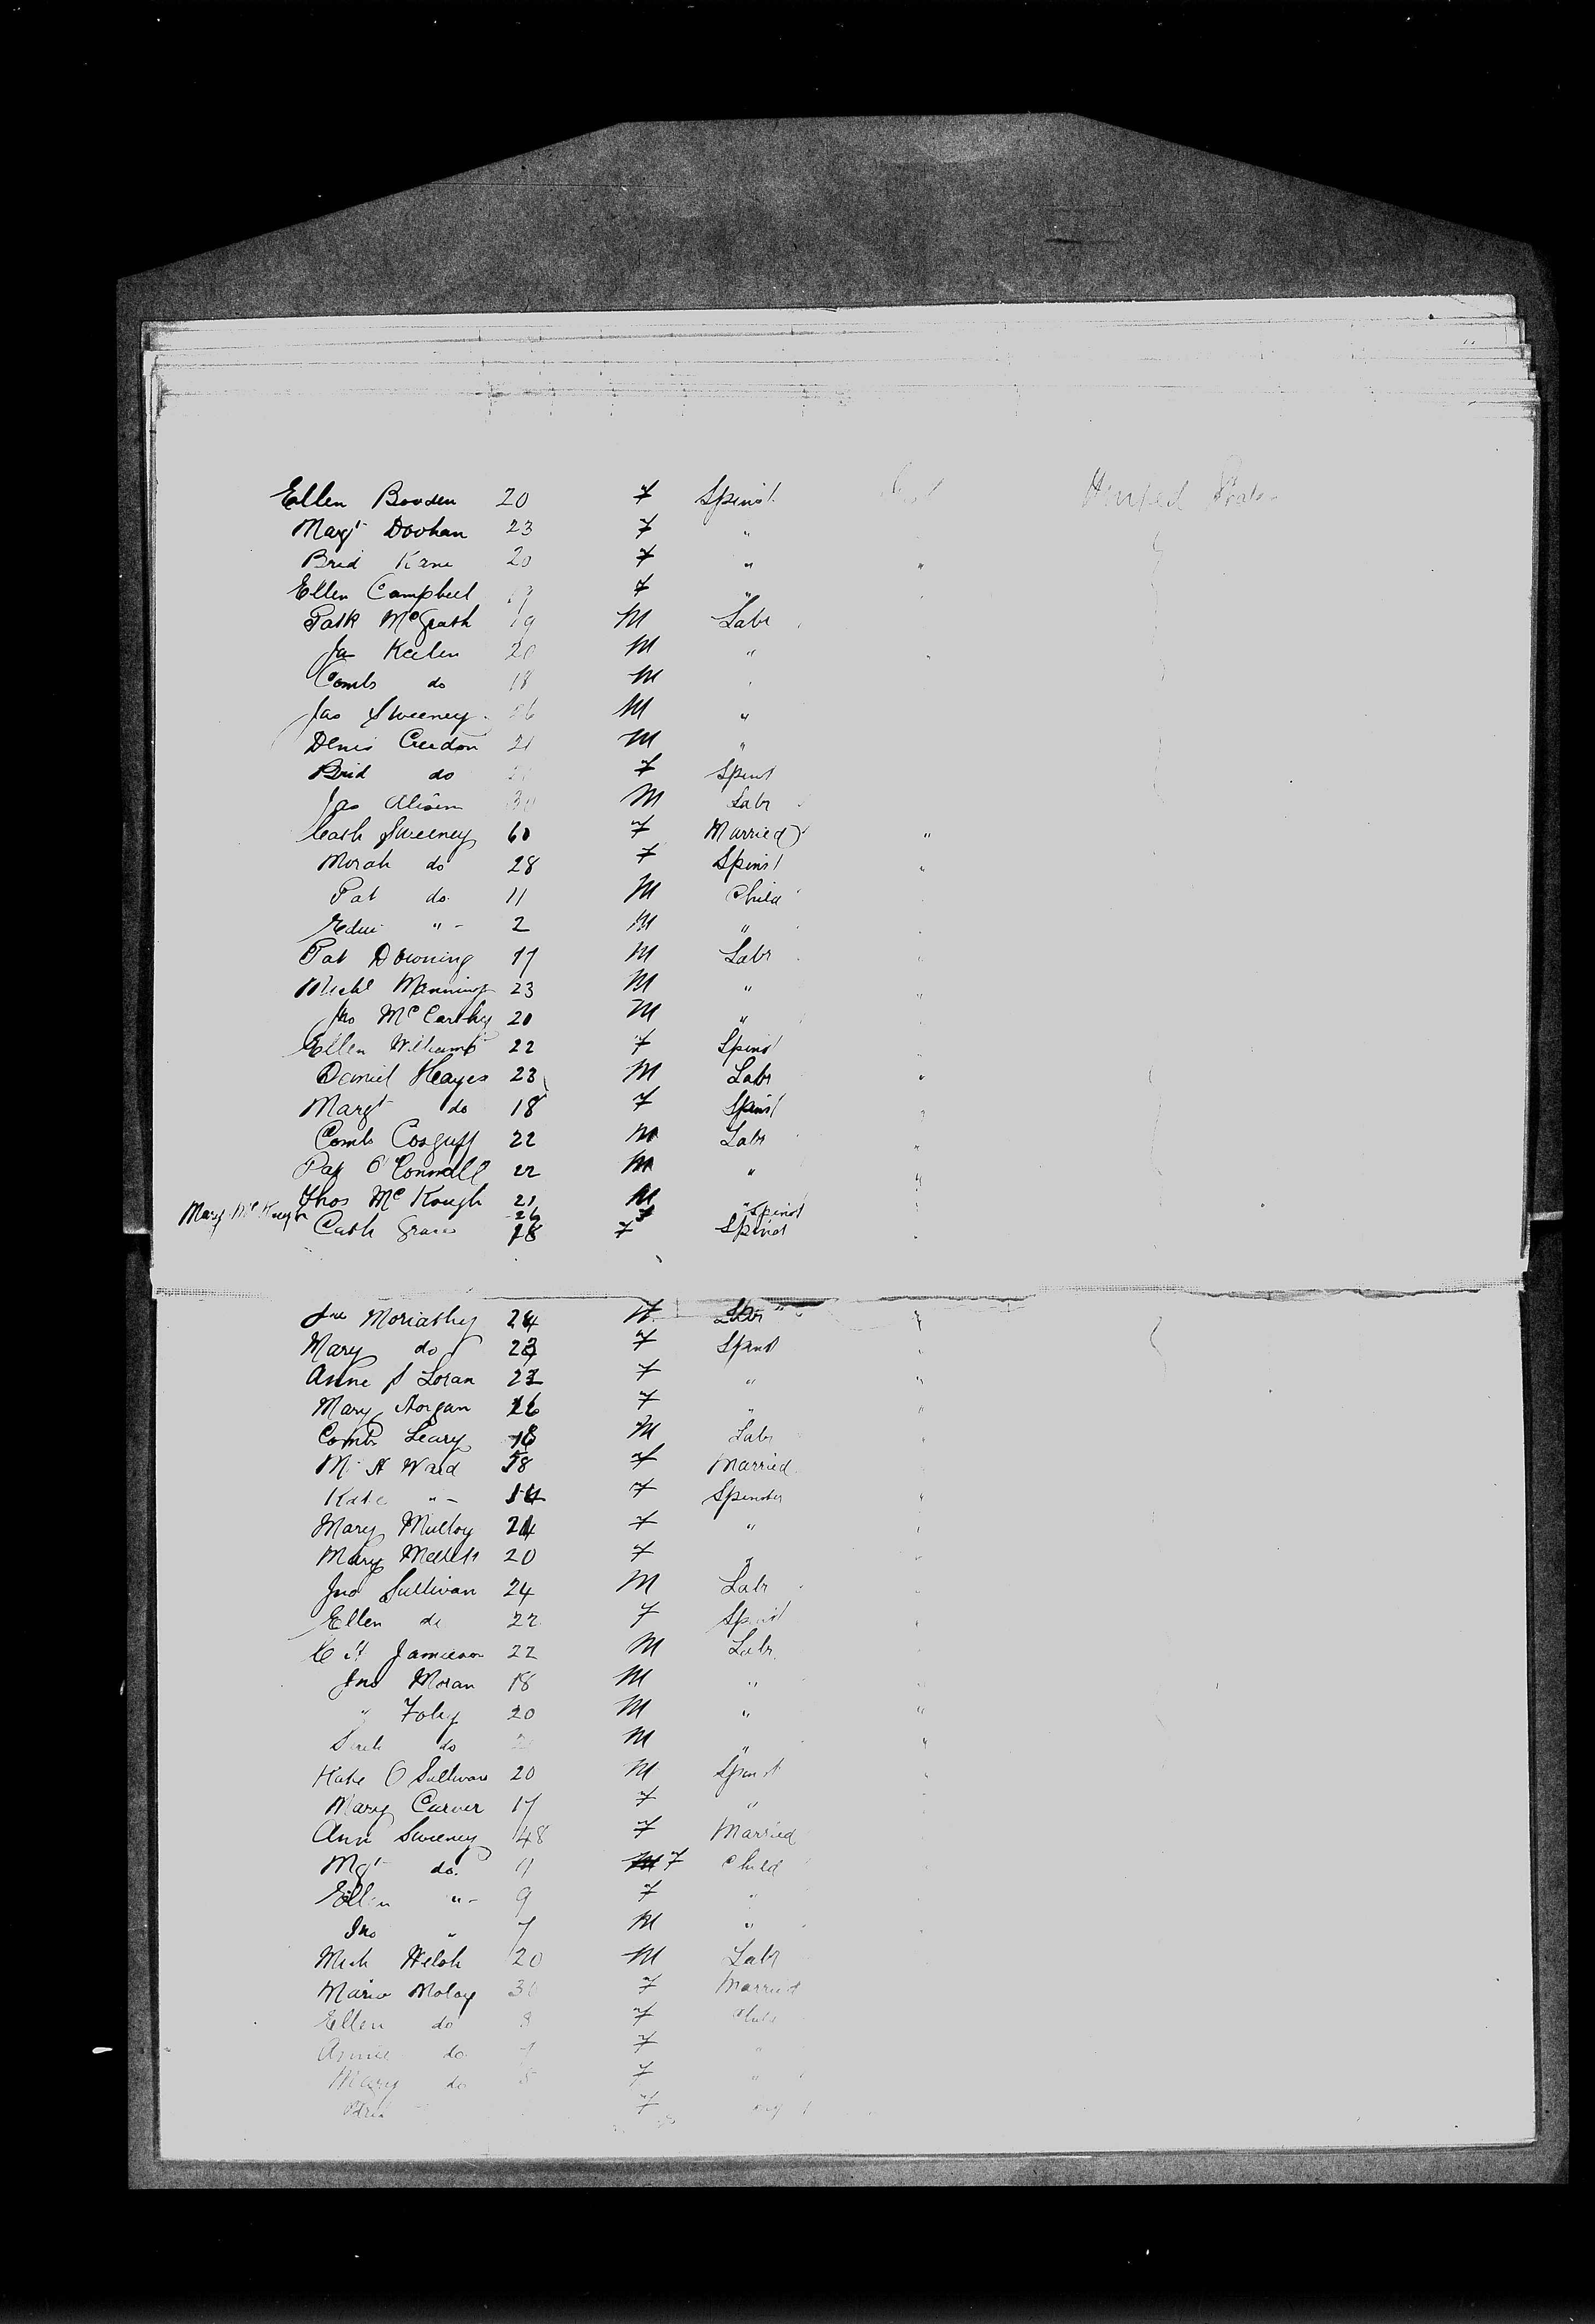 Ellen Bowden 20 F Spinst. United States
Margt Doohan 23 F "
Brid Kane 20 F " "
Ellen Campbell 19 F "
Patk McGrath 19 M Labr
Ja Keelen 20 M " "
Corns do 18 M
Jas Sweeney 26 M "
Denis Creedon 21 M "
Brid do F Spinst
Jas 30 M Labr
Cath Sweeney 60 F Married "
Norah do 28 F Spinst "
Pat do 11 M Child
" 2 M "
Pat Downing 17 M Labr
Michl Manning 23 M " "
Jno McCarthy 20 M "
Ellen Williams 22 F Spinst
Daniel Hayes 23 M Labr "
Margt do 18 F Spinst
Corns Cosguff 22 M Labr "
Pat O'Connell 22 M " "
Thos McKough 21 M "
Mary McKough 26 F Spinst
Cath Grace 18 F Spinst
Jno Moriathy 24 M Labr "
Mary do 23 F Spinst
Anne Loran 22 F " "
Mary Horgan 16 F " "
Corns Leary 18 M Labr
M A Ward 58 F Married
Kate " 14 F Spinster "
Mary Mulloy 24 F "
Mary Mellett 20 F "
Jno Sullivan 24 M Labr
Ellen do 22 F Spinst
Jamieson 22 M Labr
Jno Moran 18 M "
" Foley 20 M " "
do M " "
Kate O Sullivan 20 M Spinst
Mary Carver 17 F "
Ann Sweeney 48 F Married
Mgt do. 11 F Child
Ellen " 9 F "
Jno " 7 M "
Mich Welsh 20 M Labr
Maria Moloy 30 F Married
Ellen do 8 F Child
Annie do 7 F "
Mary do 5 F "
Brid F